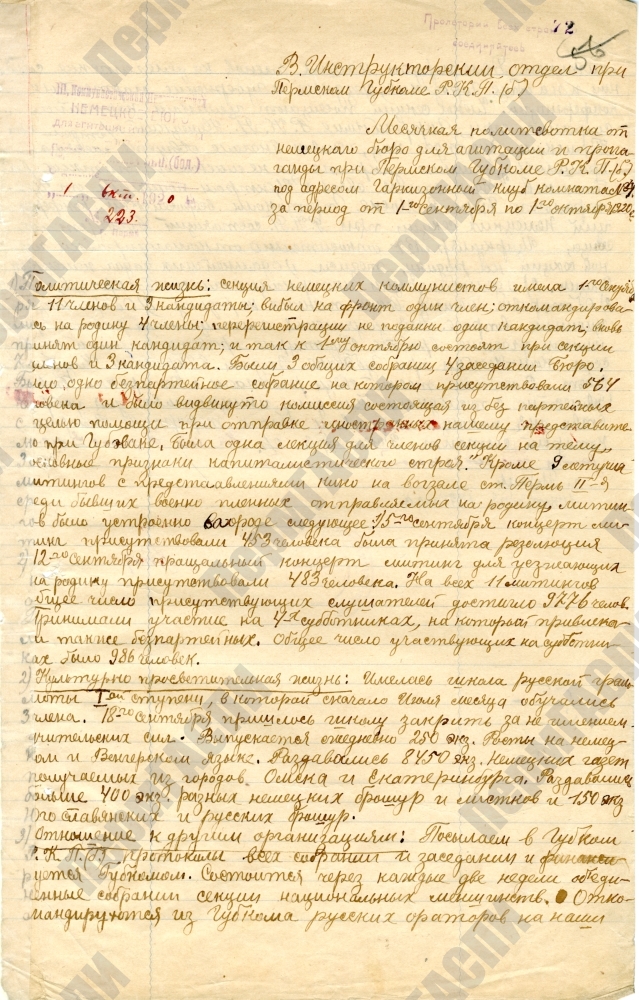 Пролетарии всех стран
соединяйтесь
72
56
НЕМЕЦКО
1 окт. 1920
223.
В Инструкторский отдел при
Пермском Губкоме Р.К.П.(б)
Месячная политсводка от
немецкого бюро для агитации и пропа-
ганды при Пермском Губкоме Р.К.П.(б)
под адресом Гарнизонный Клуб комната №4.
за период от 1-го Сентября по 1-го октября 1920 г.
1) Политическая жизнь: секция немецких коммунистов имела 1-го Сентяб
ря 11 членов и 3 кандидаты; выбыл на фронт один член; откомандирова-
лись на родину 4 члены; перерегистрации не поданны один кандидат; вновь
принят один кандидат; и так к 1 ому октябрю состоят при секции
членов и 3 кандидата. Были 3 общих собраниц 4 заседании Бюро.
Было одно безпартейное собрание на котором присутствовали 564
человека и было видвинуто комиссия состоящая из без партейных
с целью помощи при отправке нашему представите
лю при Губэване. Была одна лекция для членов секции на тему „
Основные признаки капиталистического строя." Кроме 9 летучих
митингов с представлениями кино на вокзале ст. Пермь II-я
среди бывших военно пленных отправляемых на родину, митин-
гов было устроенно в городе следующее: 1) 5-го Сентября концерт ми-
тинг присутствовали 453 человека была принята резолюция
2) 12-го Сентября пращальный концерт митинг для уезжающих
на родину присутствовали 483 человека. На всех 11 митингов
общее число присутствующих слушателей достигло 9776 челов.
Принимали участие на 4-х субботниках, на которой привлека-
ли также безпартейных. Общее число участвующих на субботни-
ках было 986 человек.
2) Культурно просветительная жизнь: Имелась школа русской грам
моты I ой ступени, в которай сначало Июля месяца обучались
члена. 18-го Сентября пришлось школу закрить за не имением
учительских сил. Выпускается ежедневно 250 экз. Росты на немец-
ком и Венгерском языке. Раздавались 8450 экз. немецких газет
получаемых из городов Омска и Екатеринбурга. Раздавались
больше 400 экз. разных немецких брошур и листков и 150 экз
Юго славянских и русских брошур.
3) Отношение к другим организациям: Посылаем в Губком
Р.К.П.(б) протоколы всех собрании и заседании и финанси
руется Губкомом. Состоится через каждые две недели обьеди-
ненные собрании секции национальных меншинств. Отко-
мандируются из Губкома русских ораторов на наши